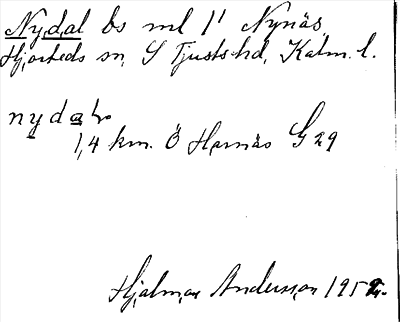 Nydal bs ml 1' Nynäs
Hjorteds sn, S Tjusts hd, Kalm. l.
nyda
1,4 km. Ö Hamnäs G 29
Hjalmar Andersson 195